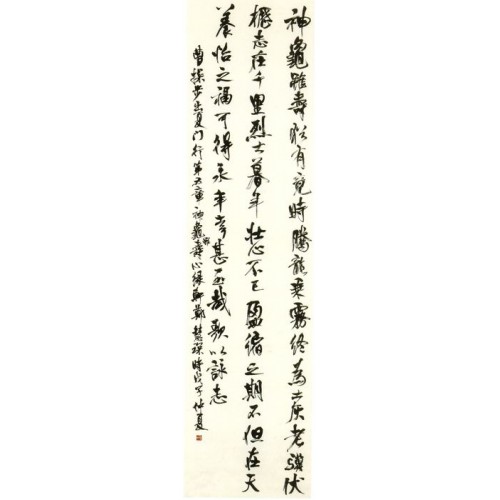 神龜雖壽猶有竟時騰龍乘霧終為土灰老驥伏
櫪志在千里烈士暮年壮心不已盈縮之期不但在天
養怡之福可得永年幸甚至哉歌以詠志
曹操步出夏门行第五章神龜壽心緣軒鄭慧操時戊子仲夏